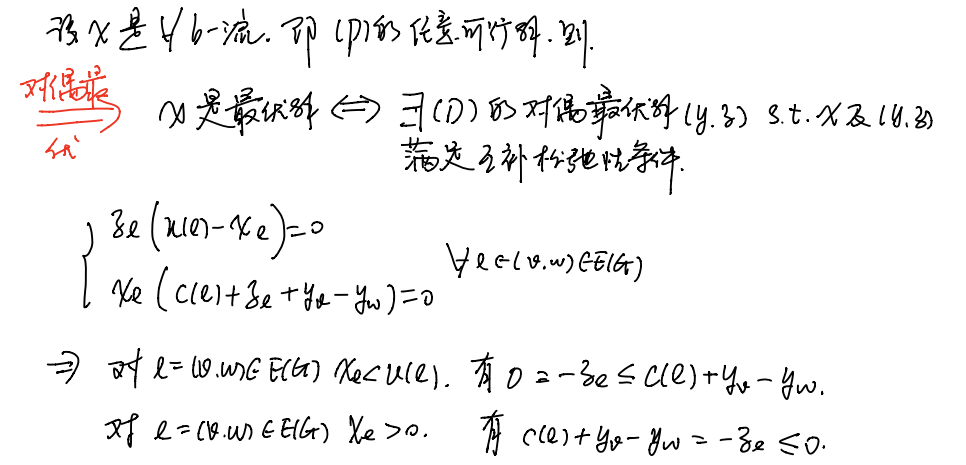 设 x 是 ∀ b-流. 即 (P)的任意可行解. 则.
对偶最优
x 是最优解 ⇔ ∃(D) 的对偶最优解(y.z) s.t. x 及 (y.z)
满足互补松弛性条件.
ze(u(e)-xe)=0
∀e∈(v.w)∈E(G)
xe(c(e)+ze+yv-yw)=0
⇒ 对 e=(v.w)∈E(G) xe<u(e). 有 0=-ze≤c(e)+yv-yw.
对 e=(v.w)∈E(G) xe>0. 有 c(e)+yv-yw=-ze≤0.